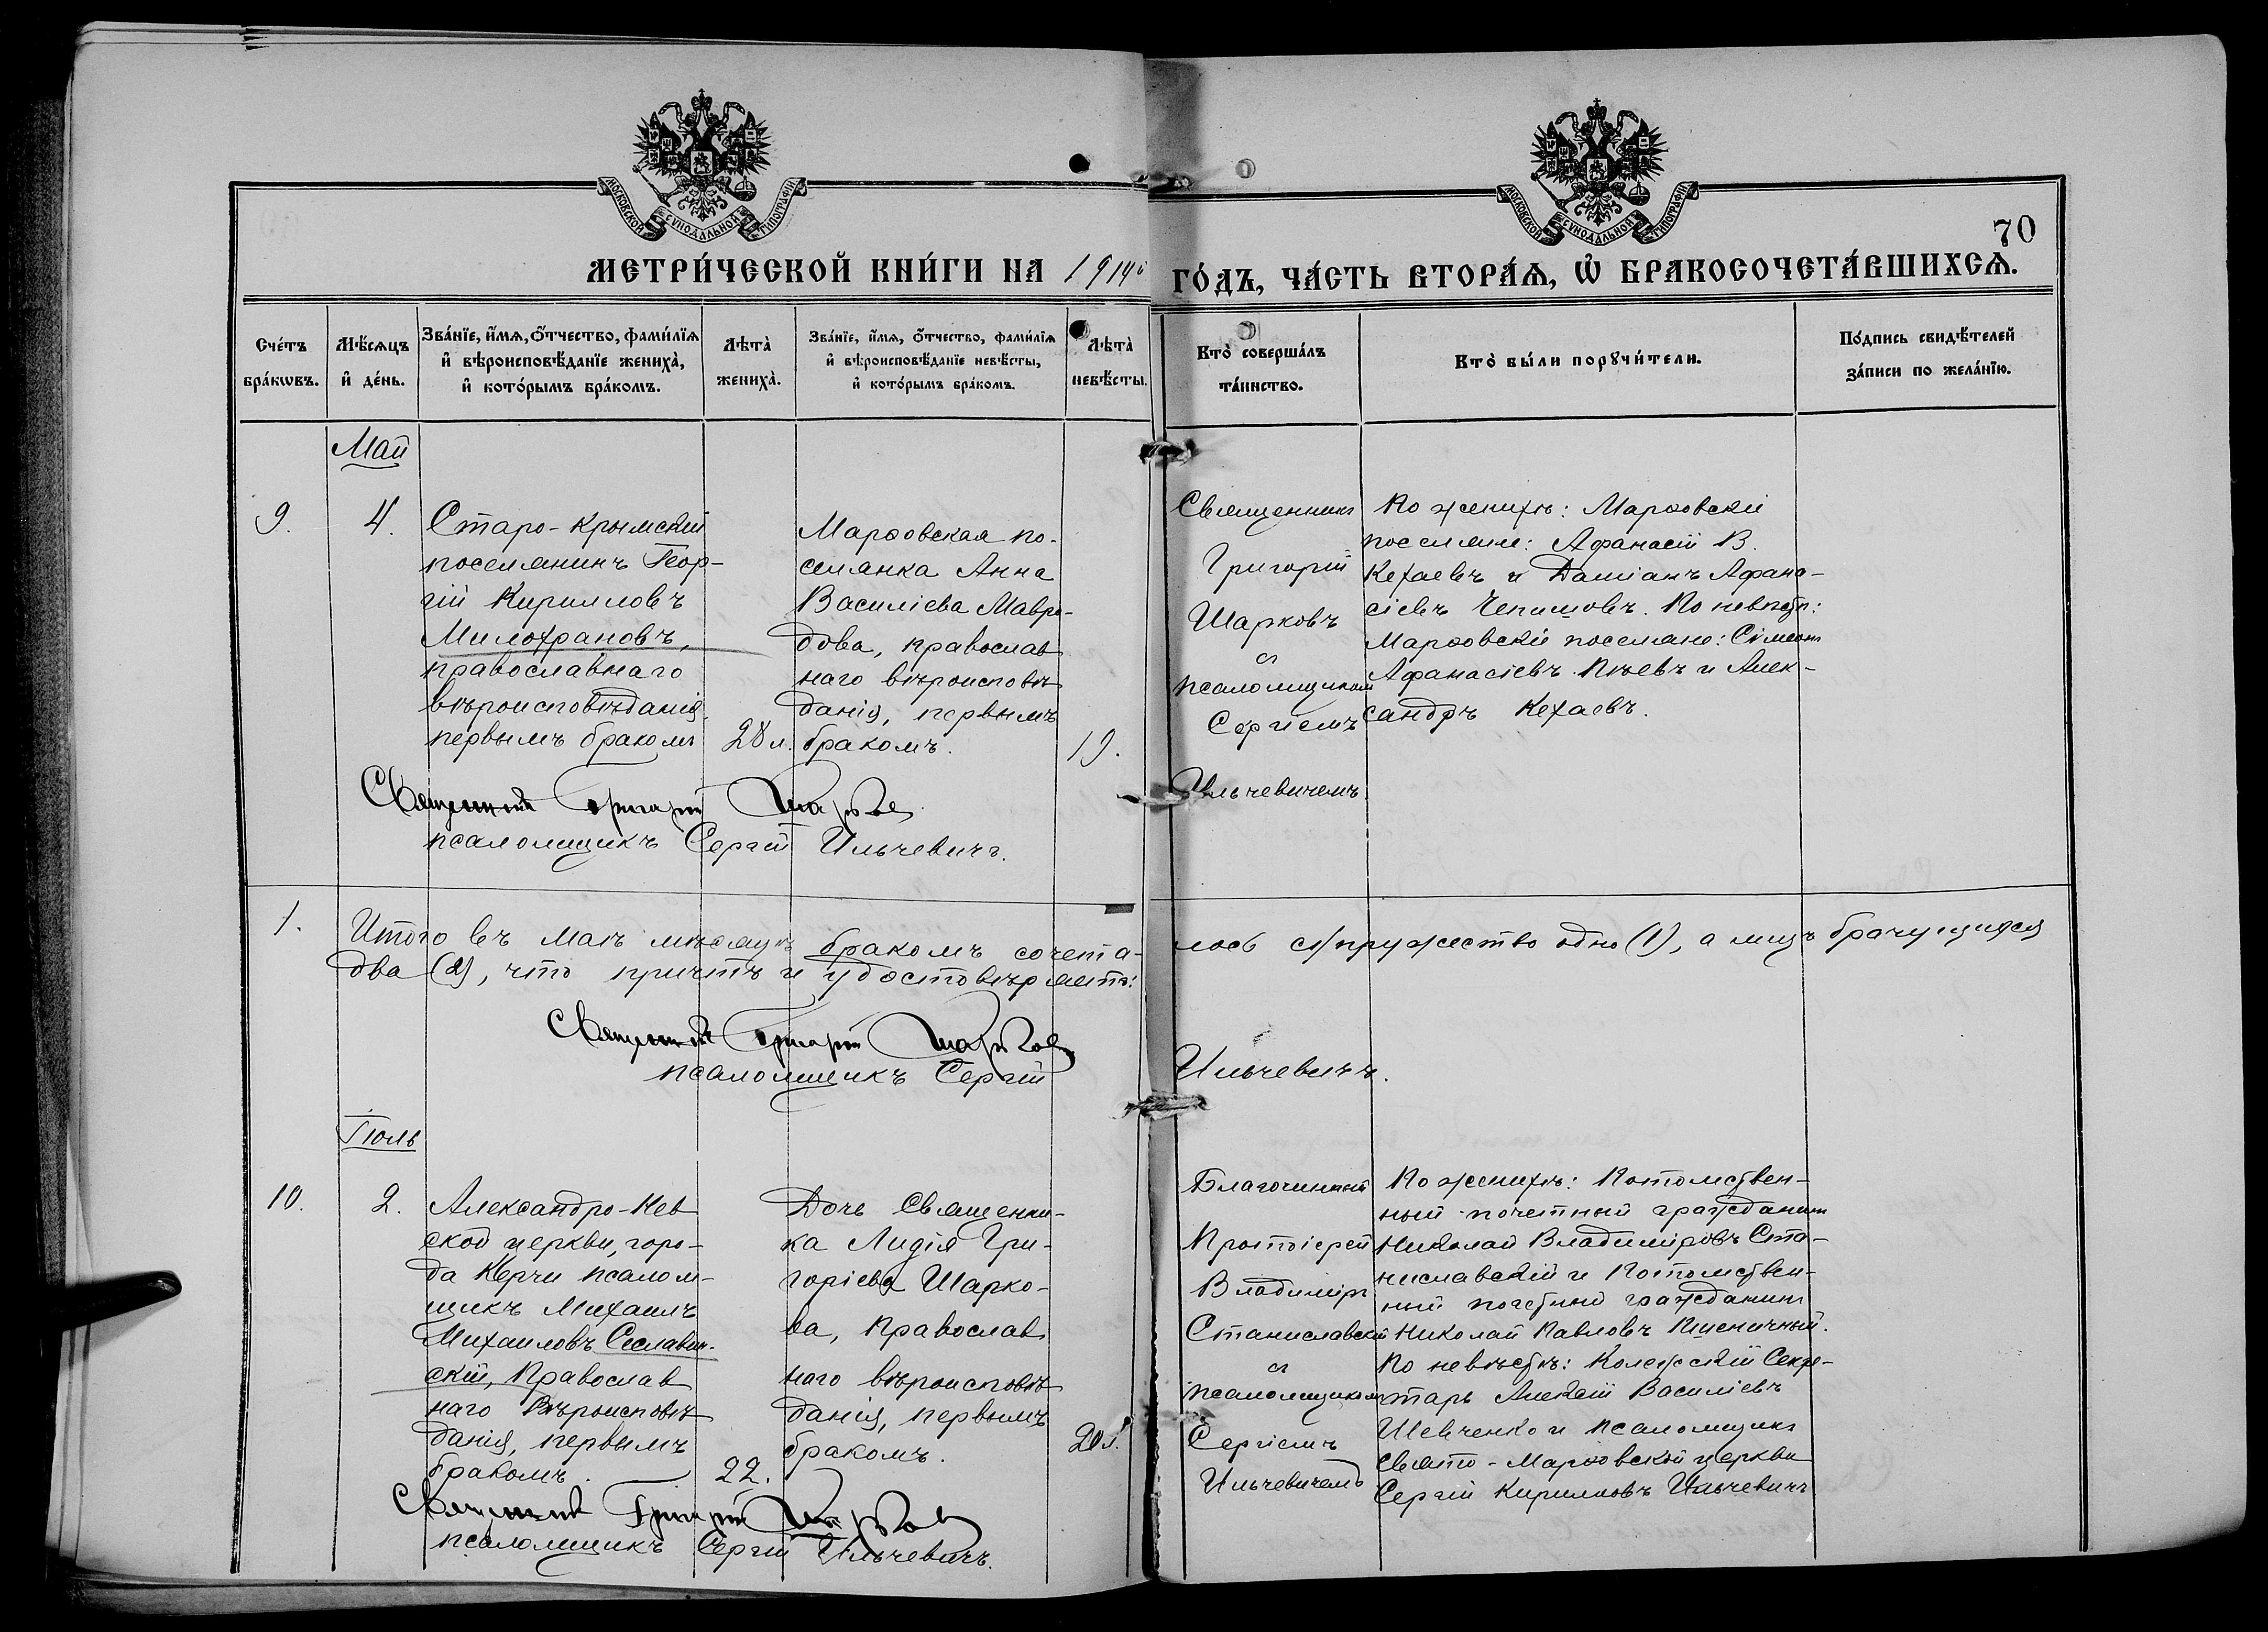 МОСКОВСКОЙ СѴНОДАЛЬНОЙ ТИПОГРАФІИ
МОСКОВСКОЙ СѴНОДАЛЬНОЙ ТИПОГРАФІИ
70
МЕТРИ́ЧЕСКОЙ КНИ́ГИ НА 1914 ГО́ДЪ, ЧА́СТЬ ВТОРА́Ѧ, Ѡ҆ БРАКОСОЧЕТА́ВШИХСѦ.
Сче́тъ
бра́кѡвъ.
Мѣ́сѧцъ
и҆ де́нь.
Зва́нїе, и҆́мѧ, ѻ҆́тчество, фами́лїѧ
и҆ вѣроисповѣ́данїе жениха̀,
и҆ кото́рымъ бра́комъ.
Лѣта̀
жениха̀.
Зва́нїе, и҆́мѧ, ѻ҆́тчество, фами́лїѧ
и҆ вѣроисповѣ́данїе невѣ́сты,
и҆ кото́рымъ бра́комъ.
Лѣта̀
невѣ́сты.
Кто̀ соверша́лъ
та́инство.
Кто̀ бы́ли порꙋчи́тели.
По́дпись свидѣ́телей
за́писи по жела́нїю.
Май
9.
4.
Старо-Крымскій
поселянинъ Геор-
гій Кирилловъ
Милохрановъ,
православнаго
вѣроисповѣданія,
первымъ бракомъ
28 л.
Марѳовская по-
селянка Анна
Василіева Мавро-
дова, православ
наго вѣроисповѣ
данія, первымъ
бракомъ.
19.
Священникъ
Григорій
Шарковъ
съ
псаломщикомъ
Сергіемъ
Ильчевичемъ.
По женихѣ: Марѳовскіе
поселяне: Афанасій В.
Кехаевъ и Даміанъ Афана-
сіевъ Чепишовъ. По невѣстѣ:
Марѳовскіе поселяне: Сімеонъ
Афанасіевъ Кіевъ и Алек-
сандръ Кехаевъ.
Священникъ Григорій Шарковъ
псаломщикъ Сергій Ильчевичъ.
1.
Итого въ Маѣ мѣсяцѣ бракомъ сочета-лось супружество одно (1), а лицъ брачущихся
два (2), что причтъ и удостовѣряетъ:
Священникъ Григорій Шарковъ
псаломщикъ Сергій Ильчевичъ.
Іюль
10.
2.
Александро-Нев
ской церкви, горо-
да Керчи псалом-
щикъ Михаилъ
Михаиловъ Сеславин-
скій, Православ
наго Вѣроисповѣ
данія, первымъ
бракомъ.
22.
Дочь Священни-
ка Лидія Гри-
горіева Шарко-
ва, Православ
наго вѣроисповѣ
данія, первымъ
бракомъ.
20 л.
Благочинный
Протоіерей
Владиміръ
Станиславскій
съ
псаломщикомъ
Сергіемъ
Ильчевичемъ
По женихѣ: Потомствен-
ный почетный гражданинъ
Николай Владиміровъ Ста-
ниславскій и Потомствен-
ный почетный гражданинъ
Николай Павловъ Пшеничный.
По невѣстѣ: Колежскій Секре-
тарь Алексій Василіевъ
Шевченко и псаломщикъ
Свято-Марѳовской церкви
Сергій Кирилловъ Ильчевичъ
Священникъ Григорій Шарковъ
псаломщикъ Сергій Ильчевичъ.